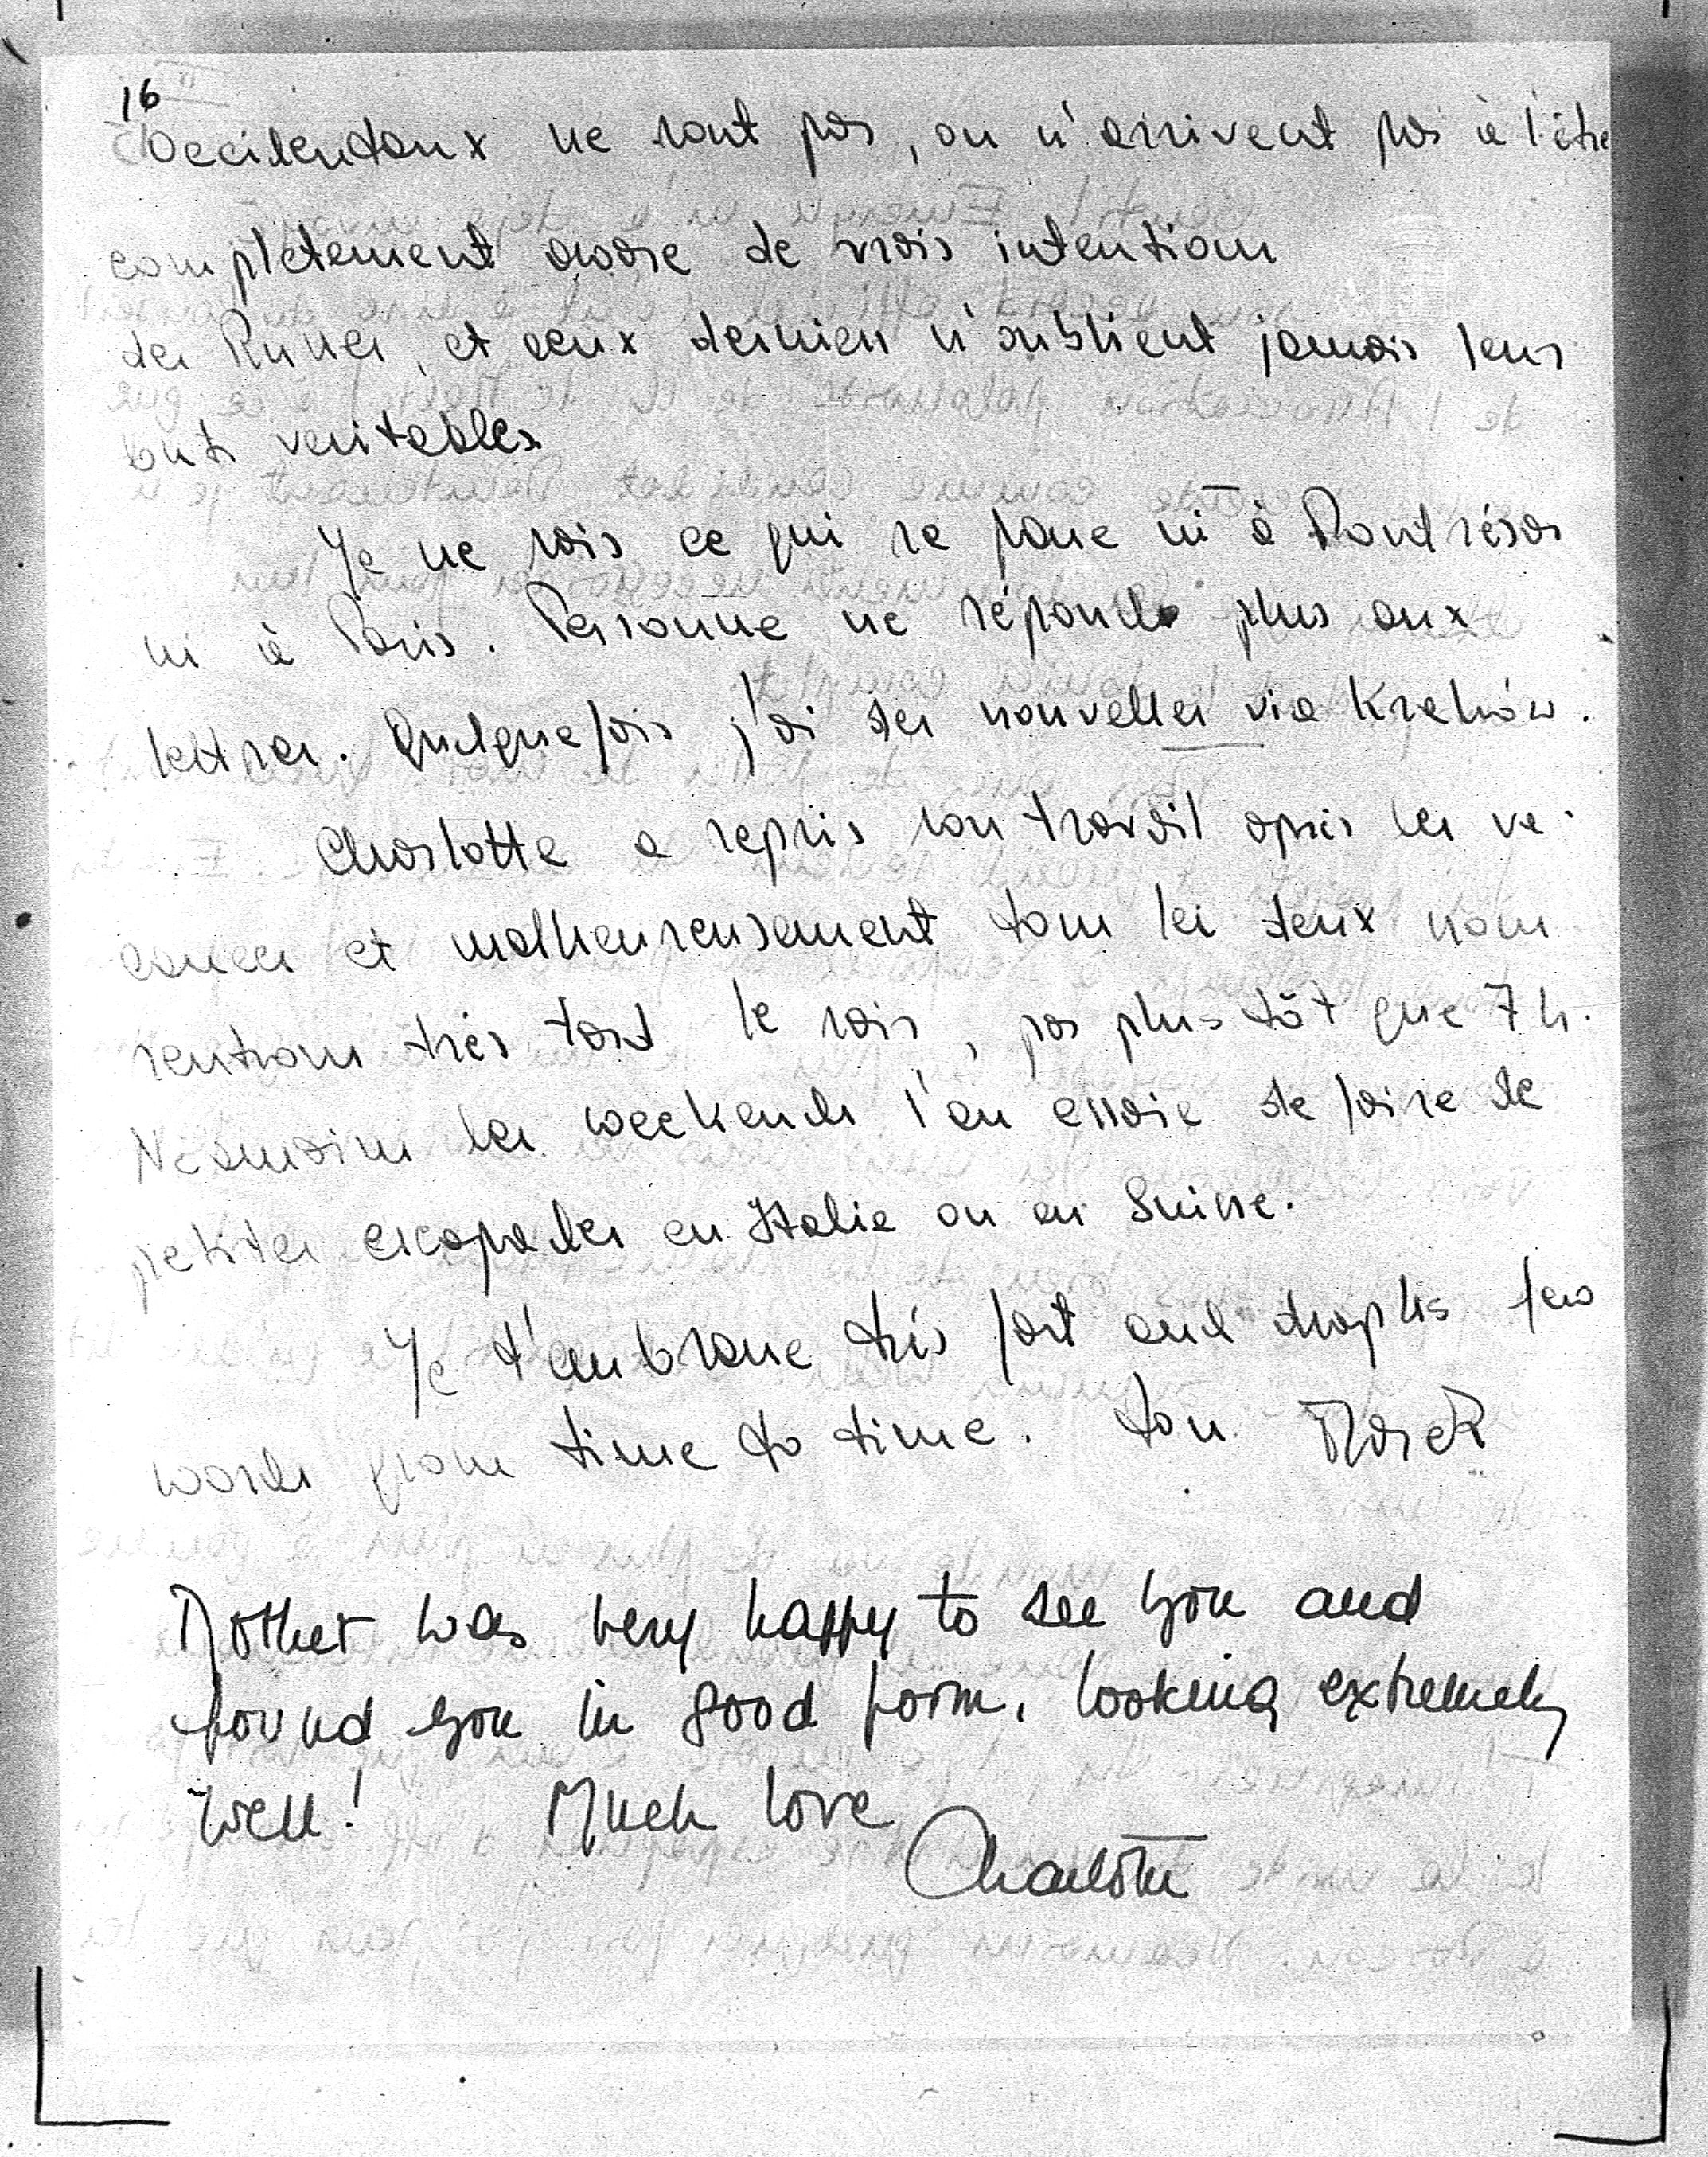 16
Occidentaux ne sont pas, ou n'arrivent pas à l'être
completement aware de vrais intentions
des Russes, et ceux derniers n'oublient jamais leurs
buts veritables.
Je ne sais ce qui se passe ni à Montrésor
ni à Paris. Personne ne réponds plus aux
lettres. Quelquefois j'ai des nouvelles via Kraków.
Charlotte a repris son travail après les va-
cances et malheureusement tous les deux nous
rentrons très tard le soir, pas plus tôt que 7 h.
Néamoins les weekends l'on essaie de faire de
petites escapades en Italie ou en Suisse.
Je t'embrasse très fort and few
words from time to time. Ton Marek
Mother was very happy to see you and
found you in good form, looking extremely
well! Much love
Charlotte